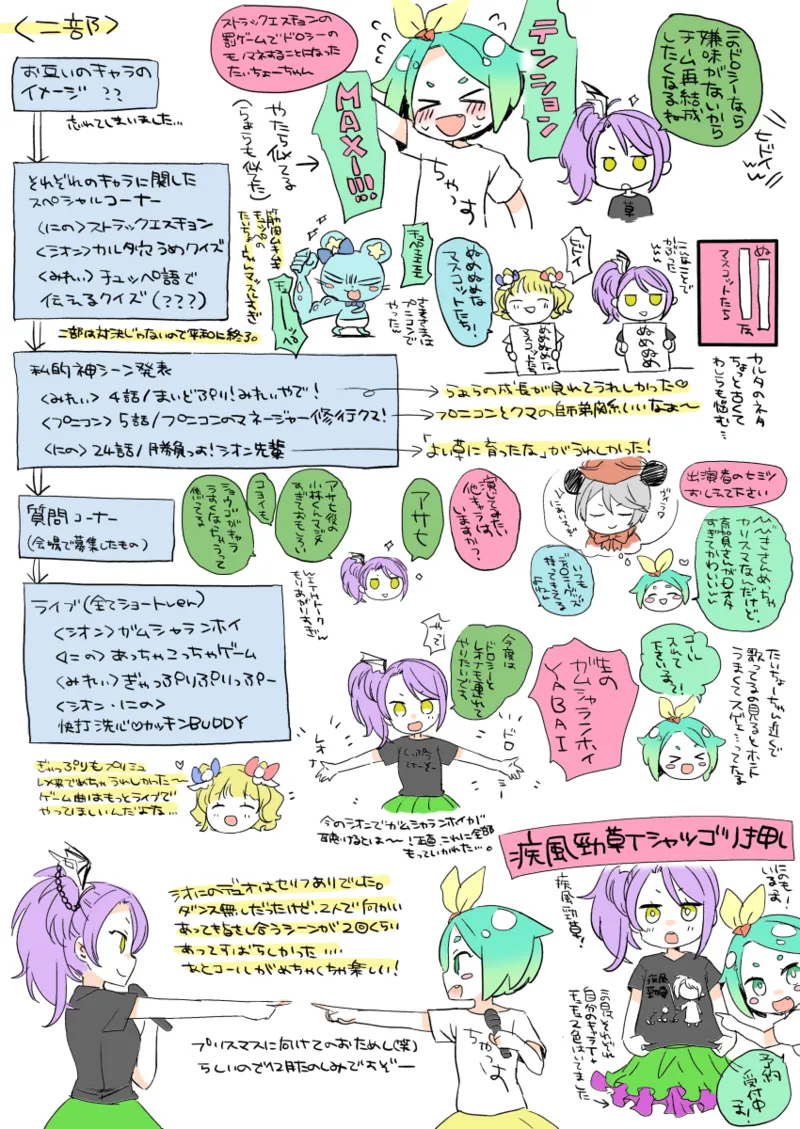 〈二部〉
お互いのキャラの
イメージ ??
忘れてしまいました…
それぞれのキャラに関した
スペシャルコーナー
〈にの〉ストラックエスチョン
〈シオン〉カルタ穴うめクイズ
〈みれぃ〉チュッペ語で
伝えるクイズ(???)
二部は対決じゃないので平和に終了。
私的神シーン発表
〈みれぃ〉4話/まいどぷり!みれぃやで!
→らぁらの成長が見れてうれしかった♡
〈プニコン〉5話/プニコンのマネージャー修行クス!
→プニコンとクマの師弟関係いいなぁ〜
〈にの〉24話/勝負っす!シオン先輩
→「よい草に育ったな」がうれしかった!
質問コーナー
(会場で募集したもの)
ライブ(全てショートver)
〈シオン〉ガムシャララホイ
〈にの〉あっちゃこっちゃゲーム
〈みれぃ〉ぎゃっぷりぷりぷっぷー
〈シオン・にの〉
快打洗心♡カッキンBUDDY
ストラックエスチョンの
罰ゲームでドロシーの
モノマネすることになった
たいちょーちゃん
やたら似てる
(らぁらも似てた)
テンション
MAX!!!
ちゃっす
このドロシーなら
嫌味がないから
チーム再結成
したくなるね
ヒドイww
草
筋肉ムキムキ
チュッペの
たいちょーちゃんマッスルすぎ
チュッペ
さまさまは
プニコンで
やったw
ぬめぬめな
マスコットたち!
ヒドイ
ぬめぬめな
マスコット
ぬめぬめ
ぬ
マスコットたち
な
カルタのネタ
ちょっと古くて
わしらも悩む…
演じてみたい
他キャラは
いますか?
アサヒ
アサヒ役の
小林くんマジメ
すぎておもろい
コヨイも
ショウゴがキャラ
うすくなっちゃうって
嘆いてる
もりあがりすぎ
出演者のヒミツ
おしえて下さい
いつも
ドロシーグッズ
持ってきてる
カリスマなんだけど、
すぎてかわいい
今度は
ドロシーと
レオナも連れて
やりたいです
やって
レオナ
ドロシー
生の
ガムシャララホイ
YABAI
コール
入れて
下さいっす!
たいちょーちゃん近くで
歌ってるの見るとホント
うまくてスゲェ…ってなる
今のシオンでガムシャララホイが
聴けるとは〜!正直これに全部
もっていかれた…。
ぎゃっぷりもプリミュ
以来でめちゃうれしかった〜
ゲーム曲はもっとライブで
やってほしいんだよな…
シオにのデュオはセリフありでした。
ダンス無しだったけど、2人で向かい
あって指をもし合うシーンが2回くらい
あってすばらしかった….
あとコールがめちゃくちゃ楽しい!
プリスマスに向けてのおためし(笑)
らしいので12月たのしみですぞー
ちゃっす
疾風勁草Tシャツゴリ押し
疾風勁草!
疾風
勁草
にのも
いるっす!
自分のキャラの
チュチュ2色はいてました
予約
受付中
っす!